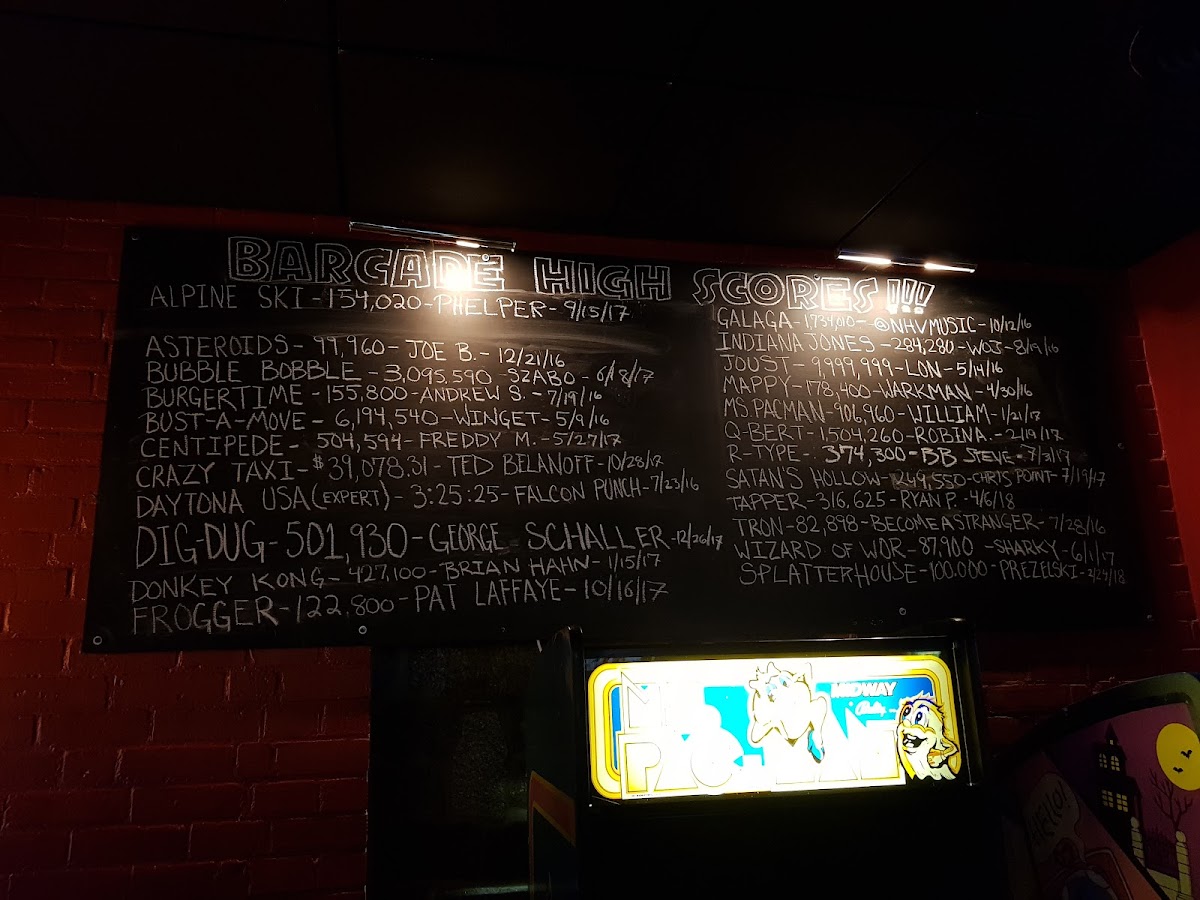 BARCADE HIGH SCORES!!!
ALPINE SKI-154,020-PHELPER-9/15/17
ASTEROIDS-99,960-JOE B.-12/21/16
BUBBLE BOBBLE-3,095,590 SZABO-6/18/17
BURGERTIME-155,800-ANDREW S.-7/19/16
BUST-A-MOVE-6,194,540-WINGET-5/9/16
CENTIPEDE-504,594-FREDDY M.-5/27/17
CRAZY TAXI-$39,078.31-TED BELANOFF-10/28/17
DAYTONA USA(EXPERT)-3:25:25-FALCON PUNCH-7/23/16
DIG-DUG-501,930-GEORGE SCHALLER-12/26/17
DONKEY KONG-427,100-BRIAN HAHN-1/15/17
FROGGER-122,800-PAT LAFFAYE-10/16/17
GALAGA-1,734,010-@NHVMUSIC-10/12/16
INDIANA JONES-284,280-WOJ-8/19/16
JOUST-9,999,999-LON-5/14/16
MAPPY-178,400-WARKMAN-4/30/16
MS.PACMAN-906,960-WILLIAM-1/21/17
Q-BERT-1,504,260-ROBINA.-2/19/17
R-TYPE-374,300-BB STEVE-7/3/17
SATAN'S HOLLOW-249,550-CHRIS POINT-7/19/17
TAPPER-316,625-RYAN P.-4/6/18
TRON-82,898-BECOMEASTRANGER-7/28/16
WIZARD OF WOR-87,900-SHARKY-6/1/17
SPLATTERHOUSE-100,000-PREZELSKI-2/24/18
MS.
PAC-MAN
MIDWAY
Bally
HELLO!